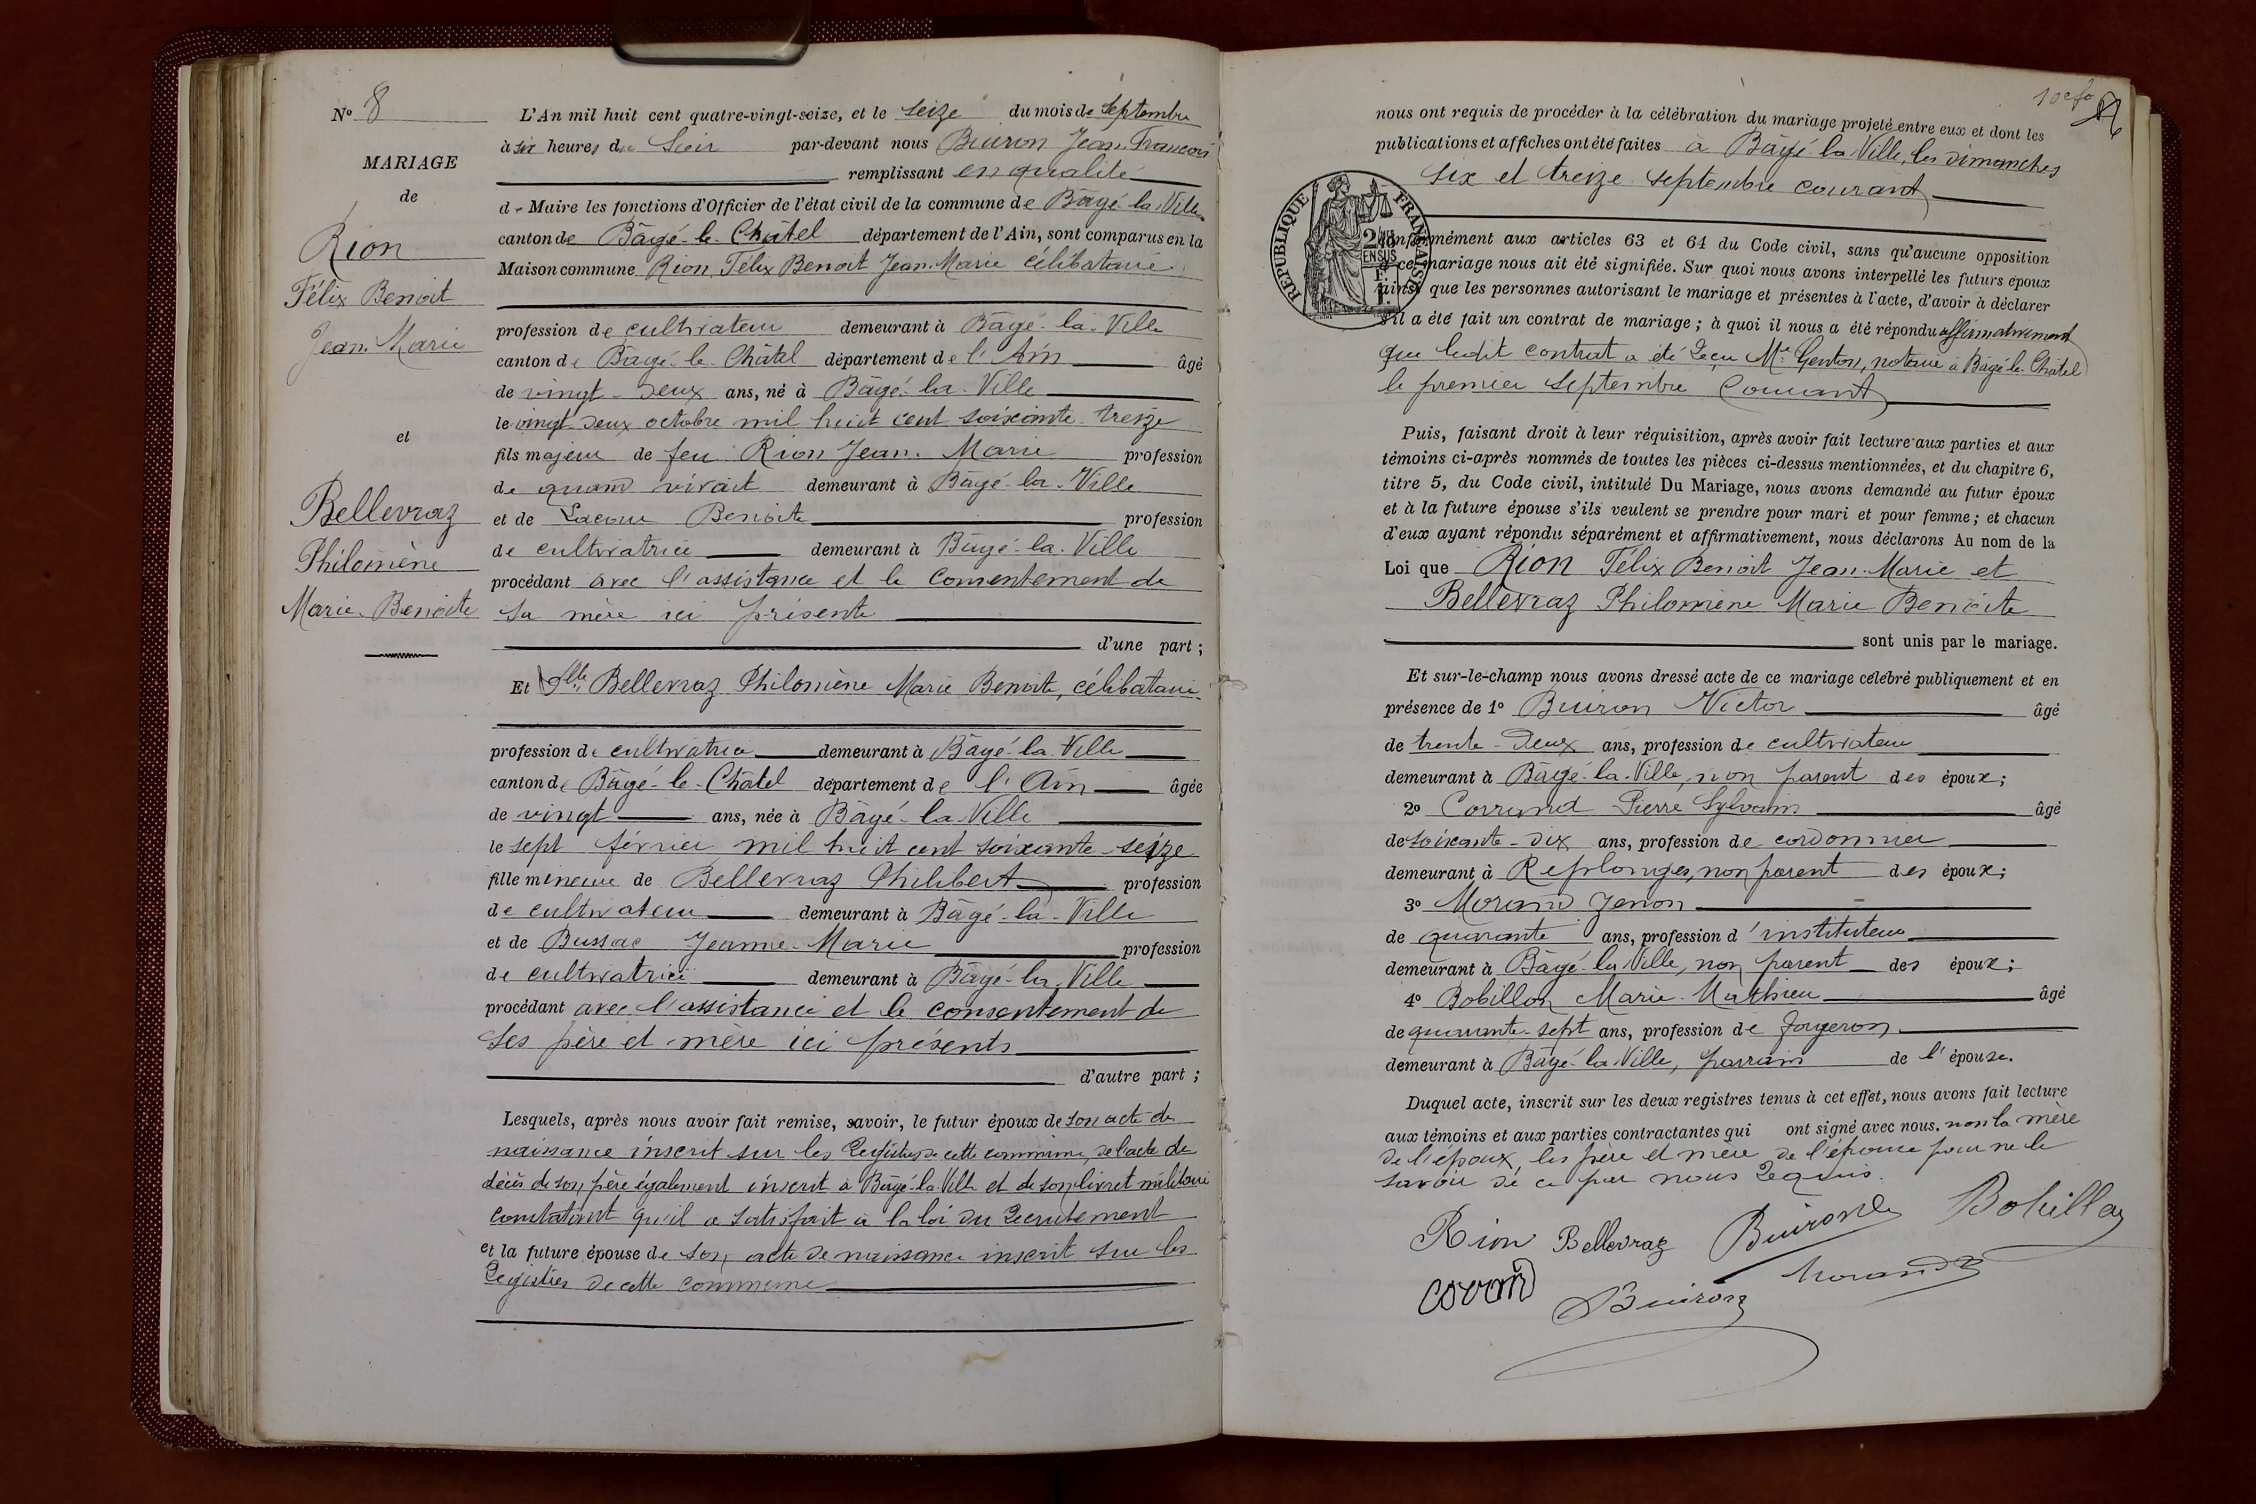 N° 8
MARIAGE
de
Rion
Félix Benoit
Jean-Marie
et
Bellevraz
Philomène
Marie-Benoite
L'An mil huit cent quatre-vingt-seize, et le seize du mois de Septembre
à six heures du Soir par-devant nous Buiron Jean-François
remplissant en qualité
de Maire les fonctions d'Officier de l'état civil de la commune de Bâgé-la-Ville
canton de Bâgé-le-Châtel département de l'Ain, sont comparus en la
Maison commune Rion, Félix Benoit Jean-Marie célibataire
profession de cultivateur demeurant à Bâgé-la-Ville
canton de Bâgé-le-Châtel département de l'Ain âgé
de vingt-deux ans, né à Bâgé-la-Ville
le vingt deux octobre mil huit cent soixante-treize
fils majeur de feu Rion Jean-Marie profession
de quand vivait demeurant à Bâgé-la-Ville
et de Lacour Benoite profession
de cultivatrice demeurant à Bâgé-la-Ville
procédant avec l'assistance et le consentement de
sa mère ici présente
d'une part ;
Et Dlle Bellevraz Philomène Marie Benoite, célibataire
profession de cultivatrice demeurant à Bâgé-la-Ville
canton de Bâgé-le-Châtel département de l'Ain âgée
de vingt ans, née à Bâgé-la-Ville
le sept février mil huit cent soixante-seize
fille mineure de Bellevraz Philibert profession
de cultivateur demeurant à Bâgé-la-Ville
et de Bussac Jeanne-Marie profession
de cultivatrice demeurant à Bâgé-la-Ville
procédant avec l'assistance et le consentement de
ses père et mère ici présents
d'autre part ;
Lesquels, après nous avoir fait remise, savoir, le futur époux de son acte de
naissance inscrit sur les Registres de cette commune, de l'acte de
décès de son père également inscrit à Bâgé-la-Ville et de son livret militaire
constatant qu'il a satisfait à la loi du Recrutement
et la future épouse de son acte de naissance inscrit sur les
Registres de cette commune
nous ont requis de procéder à la célébration du mariage projeté entre eux et dont les
publications et affiches ont été faites à Bâgé-la-Ville, les dimanches
six et treize septembre courant
RÉPUBLIQUE FRANÇAISE
conformément aux articles 63 et 64 du Code civil, sans qu'aucune opposition
à ce mariage nous ait été signifiée. Sur quoi nous avons interpellé les futurs époux
ainsi que les personnes autorisant le mariage et présentes à l'acte, d'avoir à déclarer
s'il a été fait un contrat de mariage ; à quoi il nous a été répondu affirmativement
que ledit contrat a été reçu Me Genton, notaire à Bâgé-le-Châtel
le premier septembre Courant
Puis, faisant droit à leur réquisition, après avoir fait lecture aux parties et aux
témoins ci-après nommés de toutes les pièces ci-dessus mentionnées, et du chapitre 6,
titre 5, du Code civil, intitulé Du Mariage, nous avons demandé au futur époux
et à la future épouse s'ils veulent se prendre pour mari et pour femme ; et chacun
d'eux ayant répondu séparément et affirmativement, nous déclarons Au nom de la
Loi que Rion Félix Benoit Jean-Marie et
Bellevraz Philomène Marie Benoite
sont unis par le mariage.
Et sur-le-champ nous avons dressé acte de ce mariage célébré publiquement et en
présence de 1° Buiron Victor âgé
de trente-deux ans, profession de cultivateur
demeurant à Bâgé-la-Ville, non parent des époux ;
2° Corrand Pierre Sylvain âgé
de soixante-dix ans, profession de cordonnier
demeurant à Replonges, non parent des époux ;
3° Morand Zenon
de quarante ans, profession d'instituteur
demeurant à Bâgé-la-Ville, non parent des époux ;
4° Bobillon Marie-Mathieu âgé
de quarante-sept ans, profession de forgeron
demeurant à Bâgé-la-Ville, parrain de l'épouse.
Duquel acte, inscrit sur les deux registres tenus à cet effet, nous avons fait lecture
aux témoins et aux parties contractantes qui ont signé avec nous, non la mère
de l'époux, les père et mère de l'épouse pour ne le
savoir de ce par nous Requis.
Rion Bellevraz Buiron Bobillon
Corand Buiron Morand